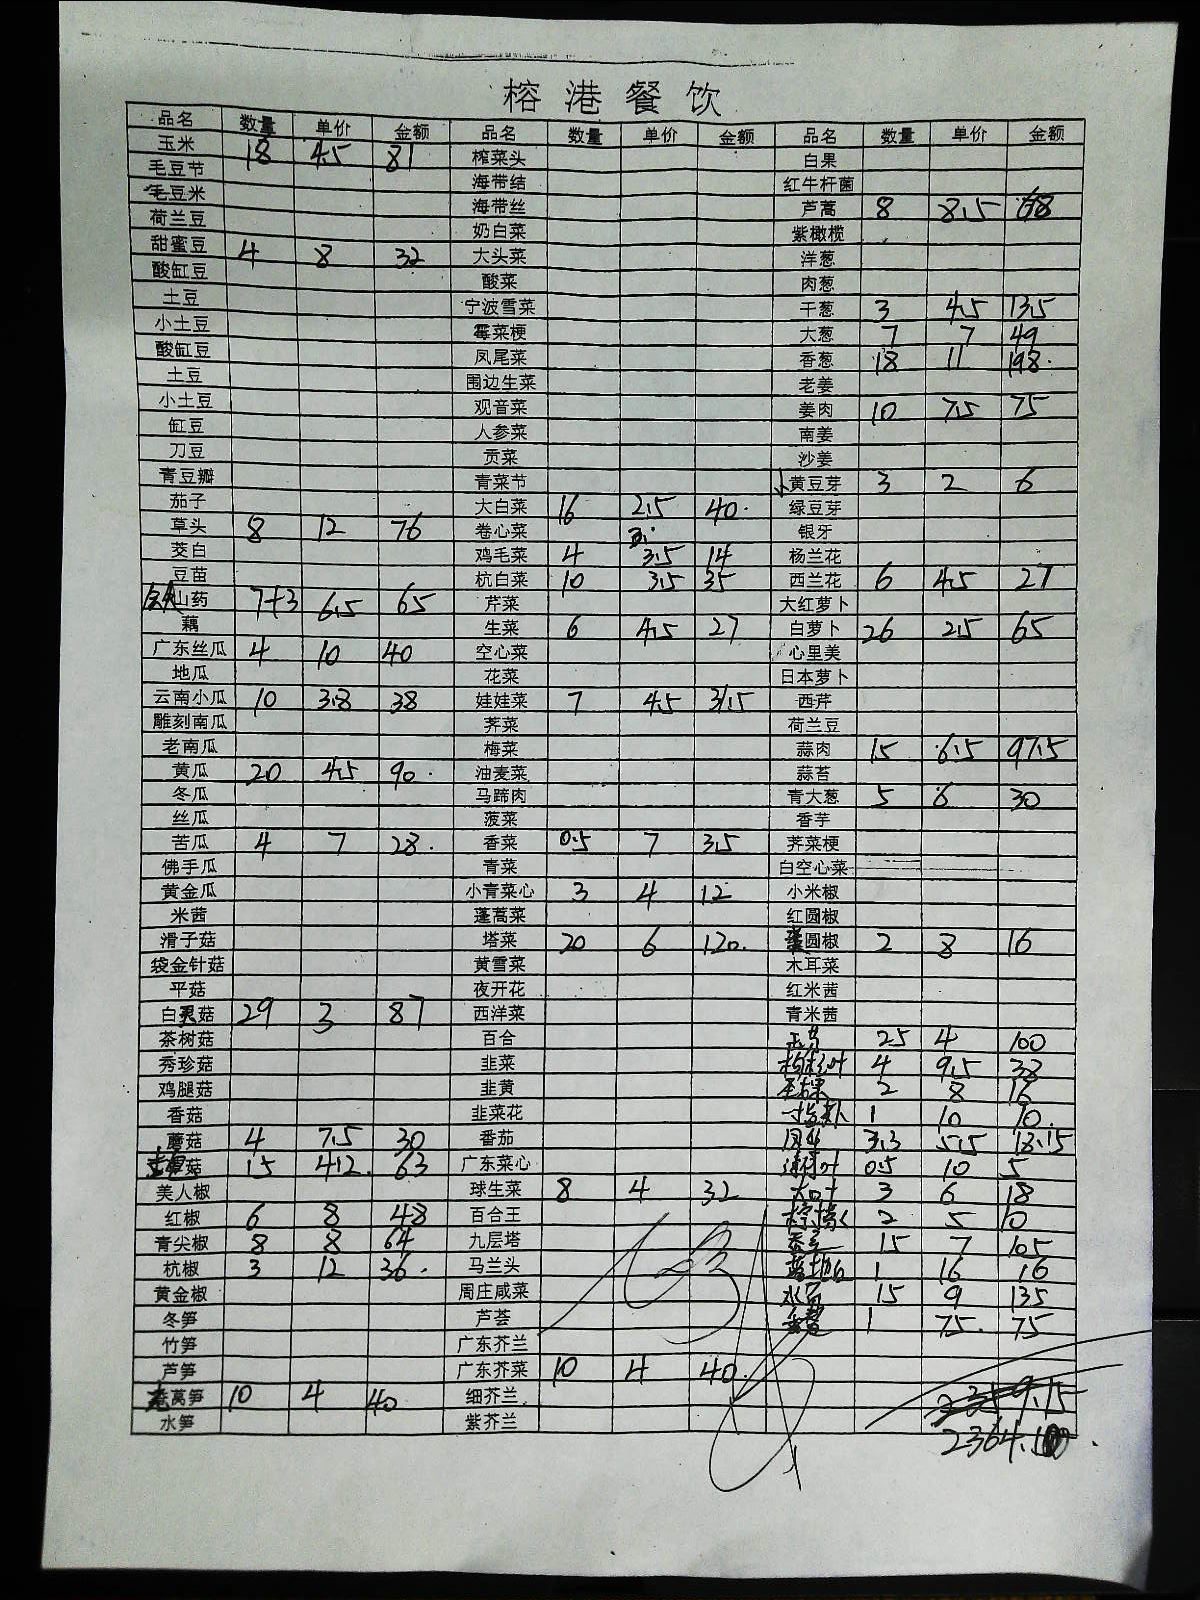 榕港餐饮
品名 数量 单价 金额 品名 数量 单价 金额 品名 数量 单价 金额
玉米 18 4.5 81 榨菜头 白果
毛豆节 海带结 红牛杆菌
毛豆米 海带丝 芦蒿 8 8.5 68
荷兰豆 奶白菜 紫橄榄
甜蜜豆 4 8 32 大头菜 洋葱
酸缸豆 酸菜 肉葱
土豆 宁波雪菜 干葱 3 4.5 13.5
小土豆 霉菜梗 大葱 7 7 49
酸缸豆 凤尾菜 香葱 18 11 198.
土豆 围边生菜 老姜
小土豆 观音菜 姜肉 10 7.5 75
缸豆 人参菜 南姜
刀豆 贡菜 沙姜
青豆瓣 青菜节 黄豆芽 3 2 6
茄子 大白菜 16 2.5 40. 绿豆芽
草头 8 12 76 卷心菜 银牙
茭白 鸡毛菜 4 3.5 14 杨兰花
豆苗 杭白菜 10 3.5 35 西兰花 6 4.5 27
山药 7+3 6.5 65 芹菜 大红萝卜
藕 生菜 6 4.5 27 白萝卜 26 2.5 65
广东丝瓜 4 10 40 空心菜 心里美
地瓜 花菜 日本萝卜
云南小瓜 10 3.8 38 娃娃菜 7 4.5 31.5 西芹
雕刻南瓜 荠菜 荷兰豆
老南瓜 梅菜 蒜肉 15 6.5 97.5
黄瓜 20 4.5 90. 油麦菜 蒜苔
冬瓜 马蹄肉 青大葱 5 6 30
丝瓜 菠菜 香芋
苦瓜 4 7 28. 香菜 0.5 7 3.5 荠菜梗
佛手瓜 青菜 白空心菜
黄金瓜 小青菜心 3 4 12 小米椒
米茜 蓬蒿菜 红圆椒
滑子菇 塔菜 20 6 120. 圆椒 2 8 16
袋金针菇 黄雪菜 木耳菜
平菇 夜开花 红米茜
白灵菇 29 3 87 西洋菜 青米茜
茶树菇 百合 25 4 100
秀珍菇 韭菜 4 9.5 38
鸡腿菇 韭黄 2 8 16
香菇 韭菜花 1 10 10.
蘑菇 4 7.5 30 番茄 3.3 5.5 18.15
菇 15 4.2. 63 广东菜心 0.5 10 5
美人椒 球生菜 8 4 32 3 6 18
红椒 6 8 48 百合王 2 5 10
青尖椒 8 8 64 九层塔 15 7 105
杭椒 3 12 36. 马兰头 1 16 16
黄金椒 周庄咸菜 15 9 135
冬笋 芦荟 1 75. 75
竹笋 广东芥兰
芦笋 广东芥菜 10 4 40.
莴笋 10 4 40 细芥兰 2359.15
水笋 紫芥兰